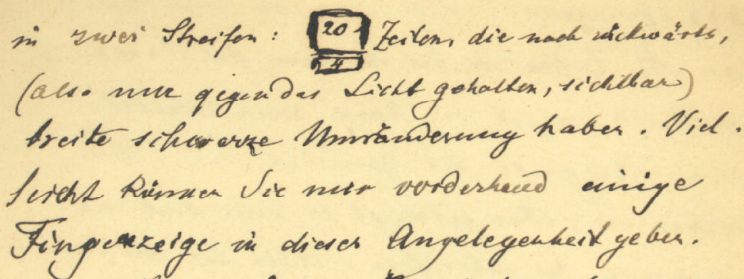 in zwei Streifen: 20 4 Zeilen, die nach rückwärts,
(also nur gegen das Licht gehalten, sichtbar)
breite schwarze Umränderung haben. Viel-
leicht können Sie mir vorderhand einige
Fingerzeige in dieser Angelegenheit geben.